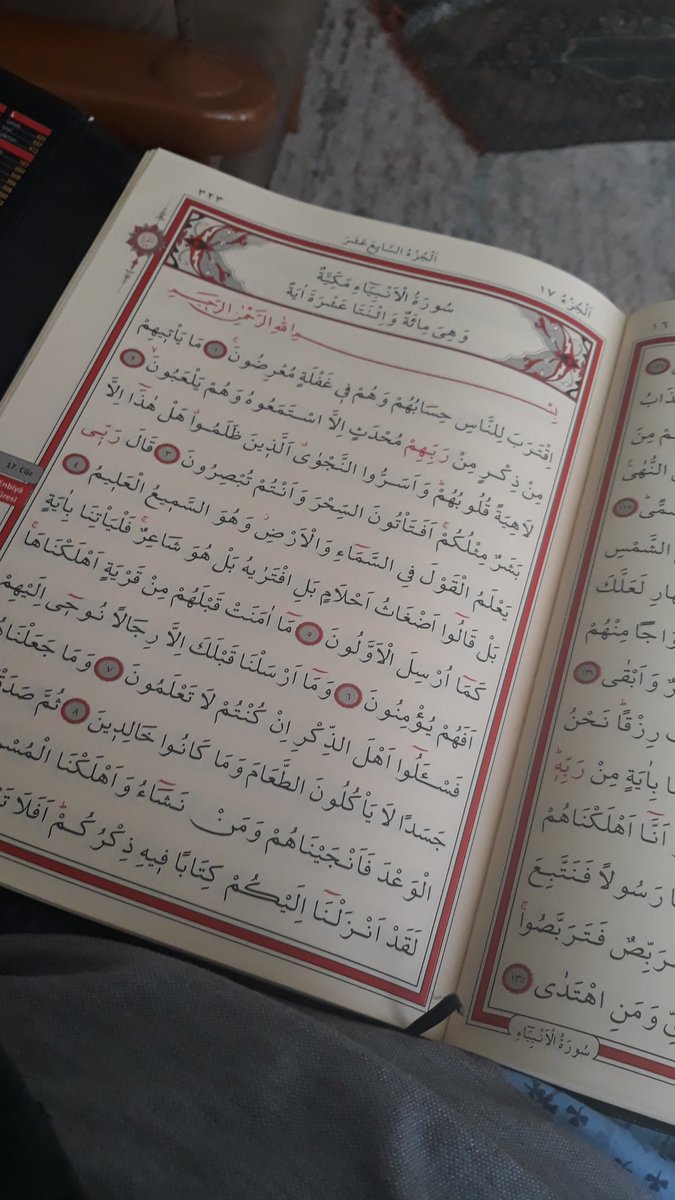 ٣٢٣
اَلْجُزْءُ السَّابِعَ عَشَرَ
اَلْجُزْءُ ١٧
سُورَةُ الْاَنْبِيَاءِ مَكِّيَّةٌ
وَهِيَ مِائَةٌ وَاِثْنَتَا عَشْرَةَ اٰيَةً
بِسْمِ اللّٰهِ الرَّحْمٰنِ الرَّحِيمِ
اِقْتَرَبَ لِلنَّاسِ حِسَابُهُمْ وَهُمْ فِي غَفْلَةٍ مُعْرِضُونَۚ ١ مَا يَأْت۪يهِمْ
مِنْ ذِكْرٍ مِنْ رَبِّهِمْ مُحْدَثٍ اِلَّا اسْتَمَعُوهُ وَهُمْ يَلْعَبُونَۙ ٢
لَاهِيَةً قُلُوبُهُمْۜ وَاَسَرُّوا النَّجْوٰىۗ اَلَّذ۪ينَ ظَلَمُواۗ هَلْ هٰذَٓا اِلَّا
بَشَرٌ مِثْلُكُمْۚ اَفَتَأْتُونَ السِّحْرَ وَاَنْتُمْ تُبْصِرُونَ ٣ قَالَ رَبّ۪ي
يَعْلَمُ الْقَوْلَ فِي السَّمَٓاءِ وَالْاَرْضِۘ وَهُوَ السَّم۪يعُ الْعَل۪يمُ ٤
بَلْ قَالُٓوا اَضْغَاثُ اَحْلَامٍ بَلِ افْتَرٰيهُ بَلْ هُوَ شَاعِرٌۚ فَلْيَأْتِنَا بِاٰيَةٍ
كَمَٓا اُرْسِلَ الْاَوَّلُونَ ٥ مَٓا اٰمَنَتْ قَبْلَهُمْ مِنْ قَرْيَةٍ اَهْلَكْنَاهَاۚ
اَفَهُمْ يُؤْمِنُونَ ٦ وَمَٓا اَرْسَلْنَا قَبْلَكَ اِلَّا رِجَالًا نُوح۪ٓي اِلَيْهِمْ
فَسْـَٔلُٓوا اَهْلَ الذِّكْرِ اِنْ كُنْتُمْ لَا تَعْلَمُونَ ٧ وَمَا جَعَلْنَاهُمْ
جَسَدًا لَا يَأْكُلُونَ الطَّعَامَ وَمَا كَانُوا خَالِد۪ينَ ٨ ثُمَّ
الْوَعْدَ فَاَنْجَيْنَاهُمْ وَمَنْ نَشَٓاءُ وَاَهْلَكْنَا
لَقَدْ اَنْزَلْنَٓا اِلَيْكُمْ كِتَابًا ف۪يهِ ذِكْرُكُمْۜ اَفَلَا
17. Cüz
١٦
مِنْ
الشَّمْسِ
لَعَلَّكَ
مِنْهُمْ
وَاَبْقٰى ١٣١
رِزْقًاۜ نَحْنُ
بِاٰيَةٍ مِنْ رَبِّه۪ۜ
اَنَّٓا اَهْلَكْنَاهُمْ
رَسُولًا فَنَتَّبِعَ
فَتَرَبَّصُواۚ
وَمَنِ اهْتَدٰى ١٣٥
سُورَةُ الْاَنْبِيَاءِ